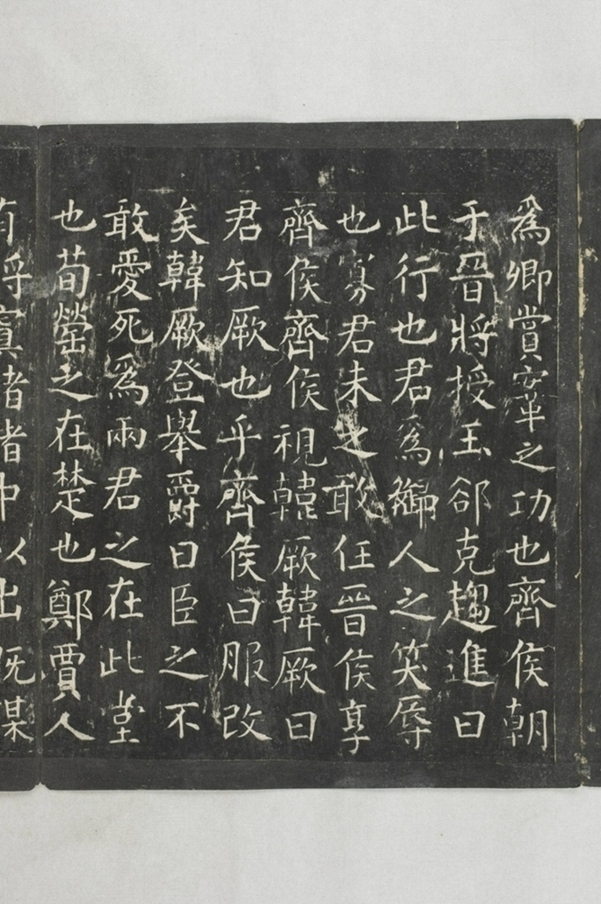 爲卿賞鞌之功也齊侯朝
于晉將授玉郤克趨進曰
此行也君爲婦人之笑辱
也寡君未之敢任晉侯享
齊侯齊侯視韓厥韓厥曰
君知厥也乎齊侯曰服改
矣韓厥登舉爵曰臣之不
敢愛死爲兩君之在此堂
也荀罃之在楚也鄭賈人
有將寘諸褚中以出既謀